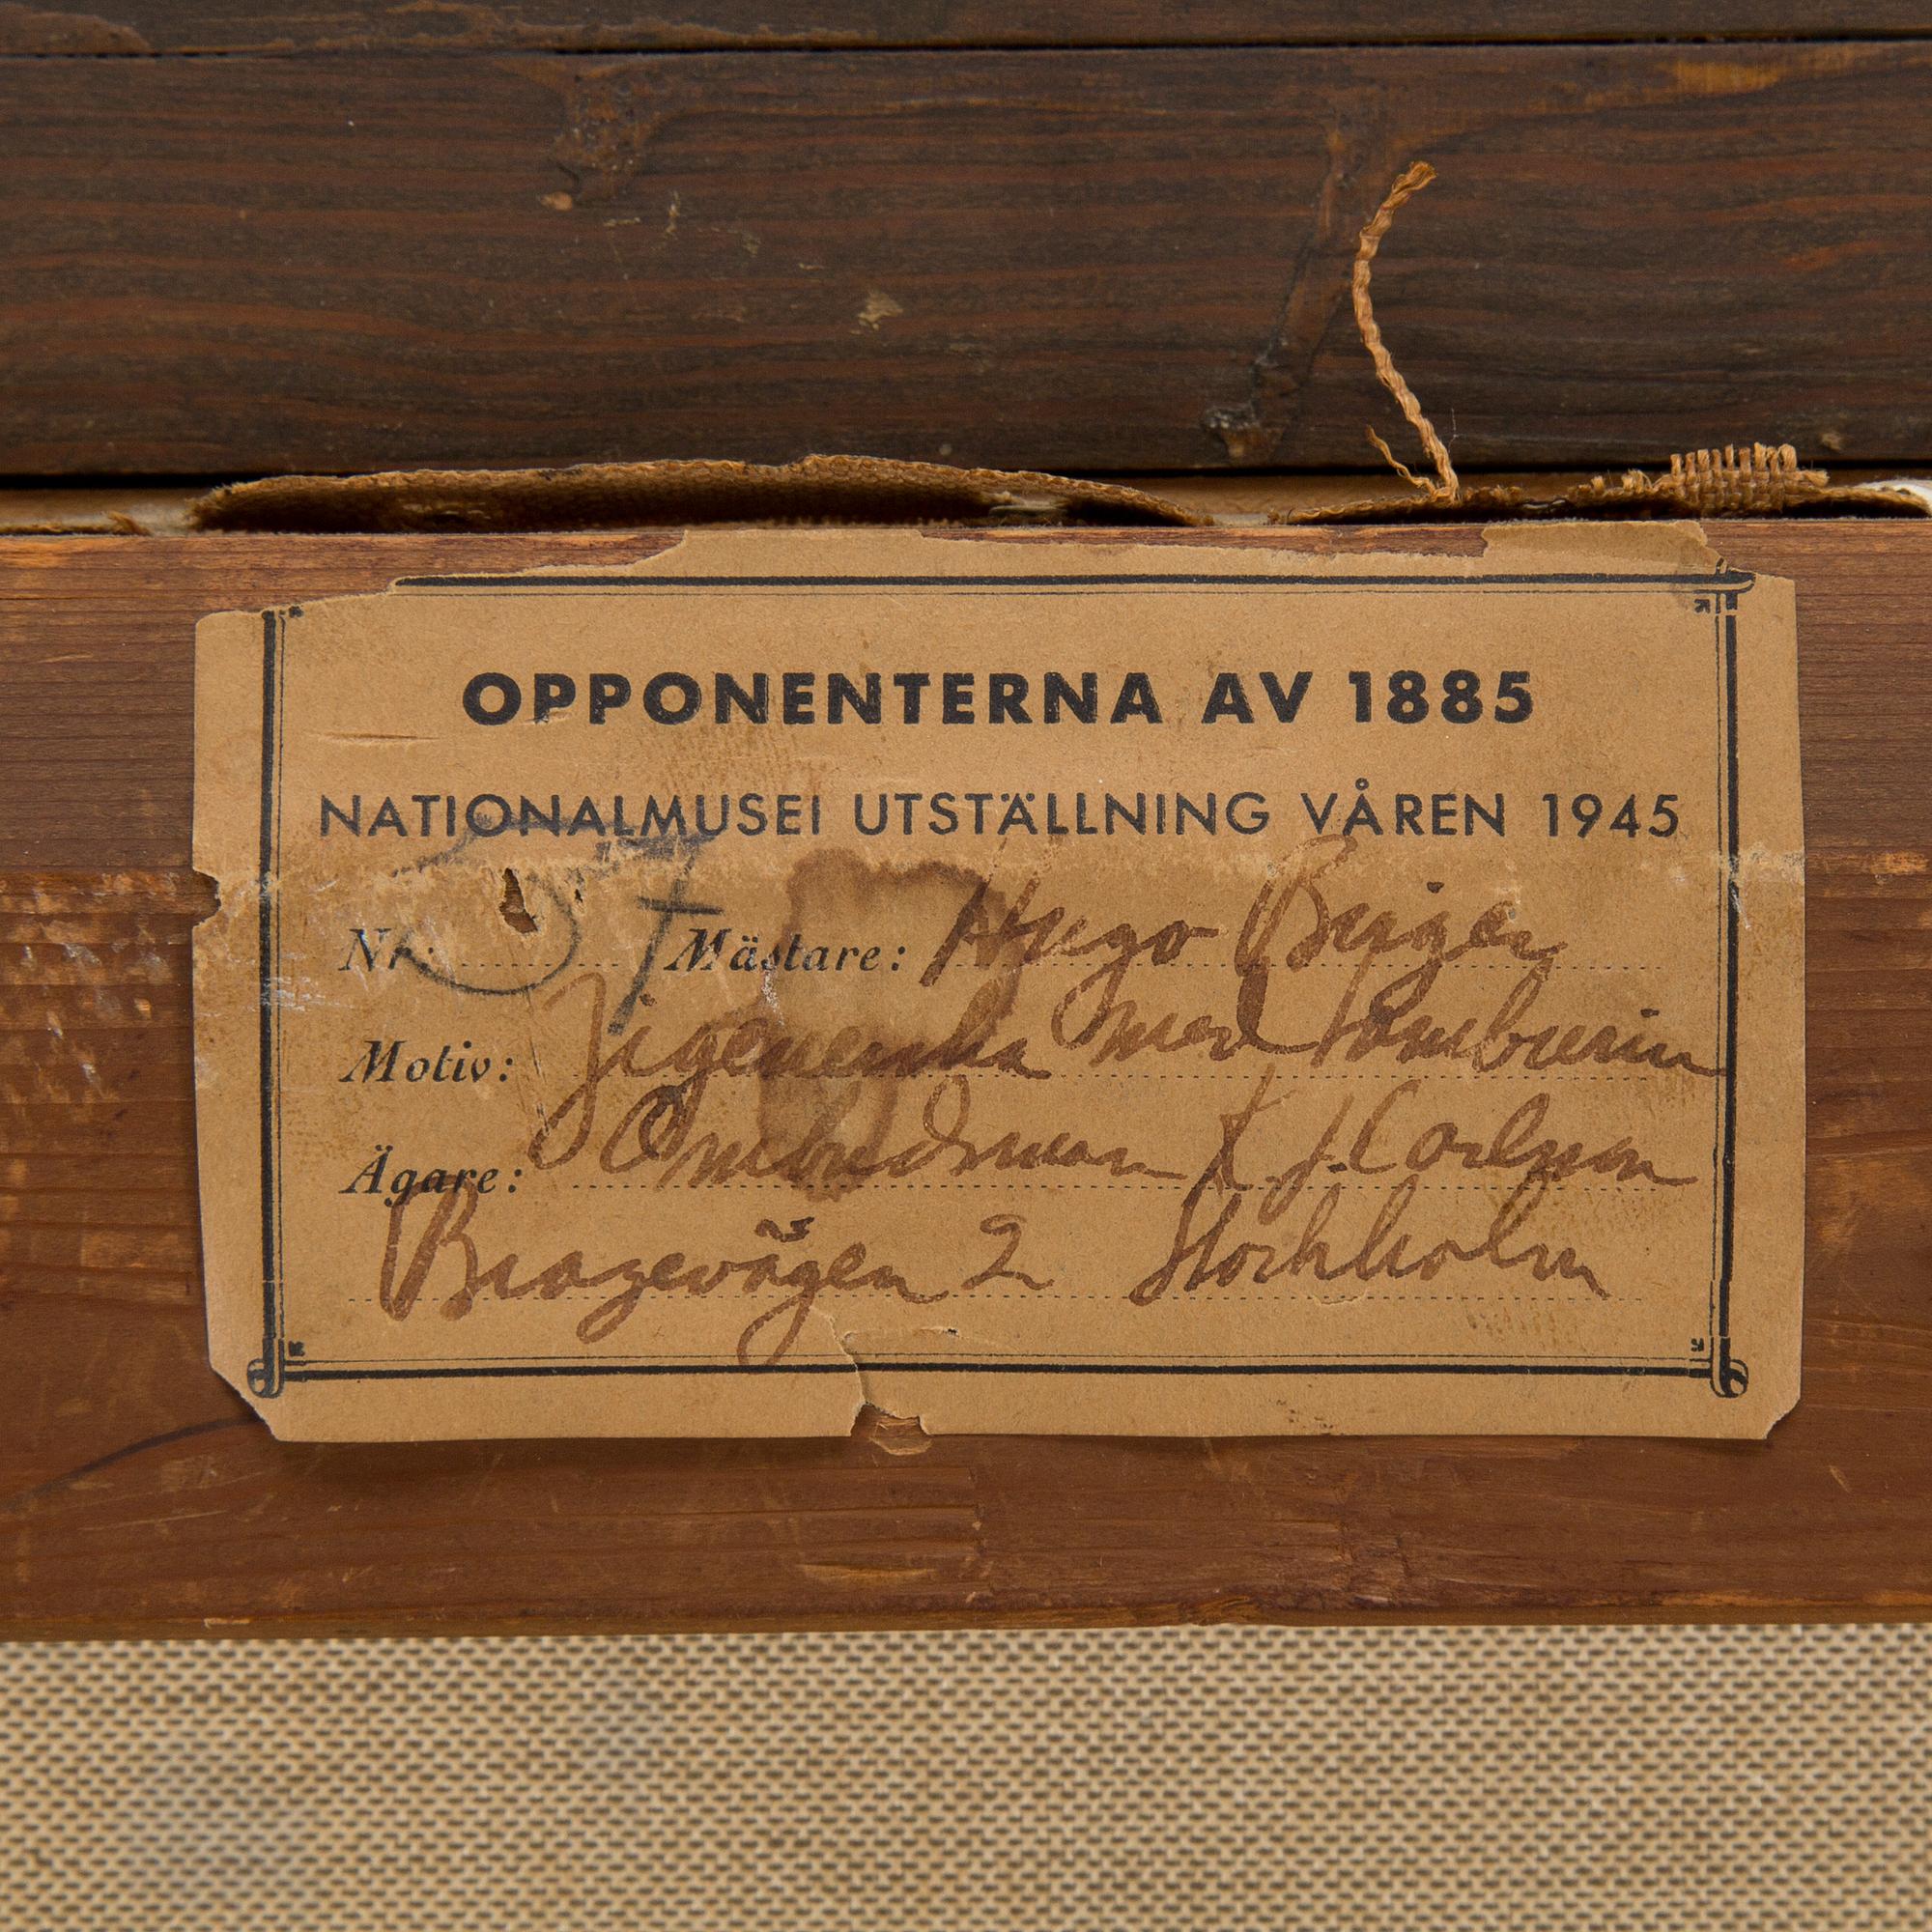 OPPONENTERNA AV 1885
NATIONALMUSEI UTSTÄLLNING VÅREN 1945
Nr: 57 Mästare: Hugo Birger
Motiv: Zigenerska med tamburin
Ägare: Ombudsman K. J. Carlson
Bragevägen 2 Stockholm